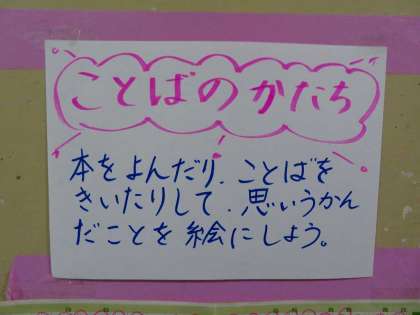 ことばのかたち
本をよんだり、ことばを
きいたりして、思いうかん
だことを絵にしよう。